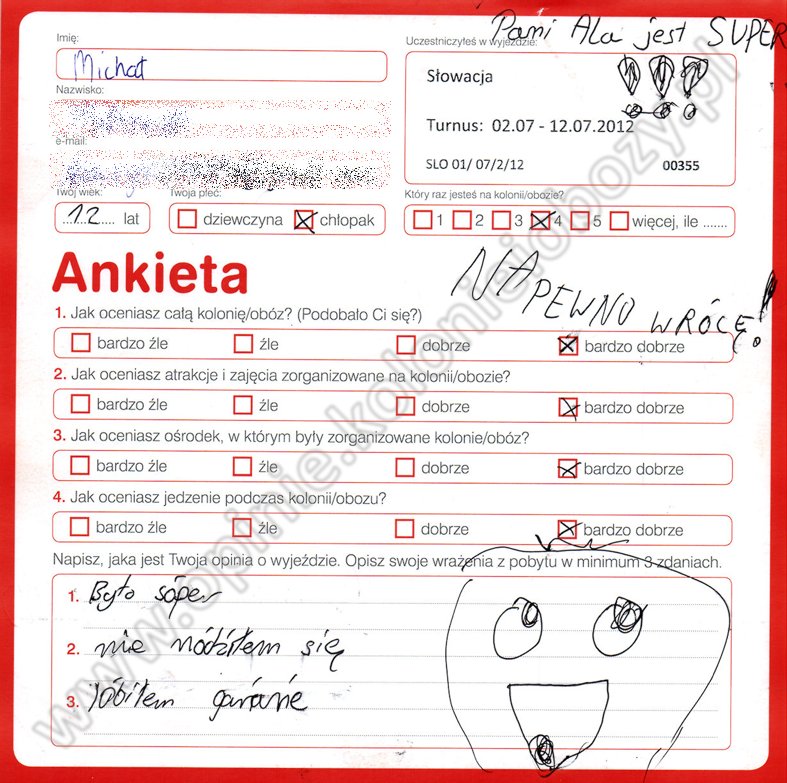 Pani Ala jest SUPER
!!!
Imię:
Michał
Uczestniczyłeś w wyjeździe:
Nazwisko:
Słowacja
e-mail:
Turnus: 02.07 - 12.07.2012
SLO 01/ 07/2/12 00355
Twój wiek: Twoja płeć:
12 lat dziewczyna chłopak
Który raz jesteś na kolonii/obozie?
1 2 3 4 5 więcej, ile .......
Ankieta
NA PEWNO WRÓCĘ!
1. Jak oceniasz całą kolonię/obóz? (Podobało Ci się?)
bardzo źle źle dobrze bardzo dobrze
2. Jak oceniasz atrakcje i zajęcia zorganizowane na kolonii/obozie?
bardzo źle źle dobrze bardzo dobrze
3. Jak oceniasz ośrodek, w którym były zorganizowane kolonie/obóz?
bardzo źle źle dobrze bardzo dobrze
4. Jak oceniasz jedzenie podczas kolonii/obozu?
bardzo źle źle dobrze bardzo dobrze
Napisz, jaka jest Twoja opinia o wyjeździe. Opisz swoje wrażenia z pobytu w minimum 3 zdaniach.
1. Było sóper
2. nie nódziłem się
3. lóbiłem
www.opinie.kolonie.obozy.pl